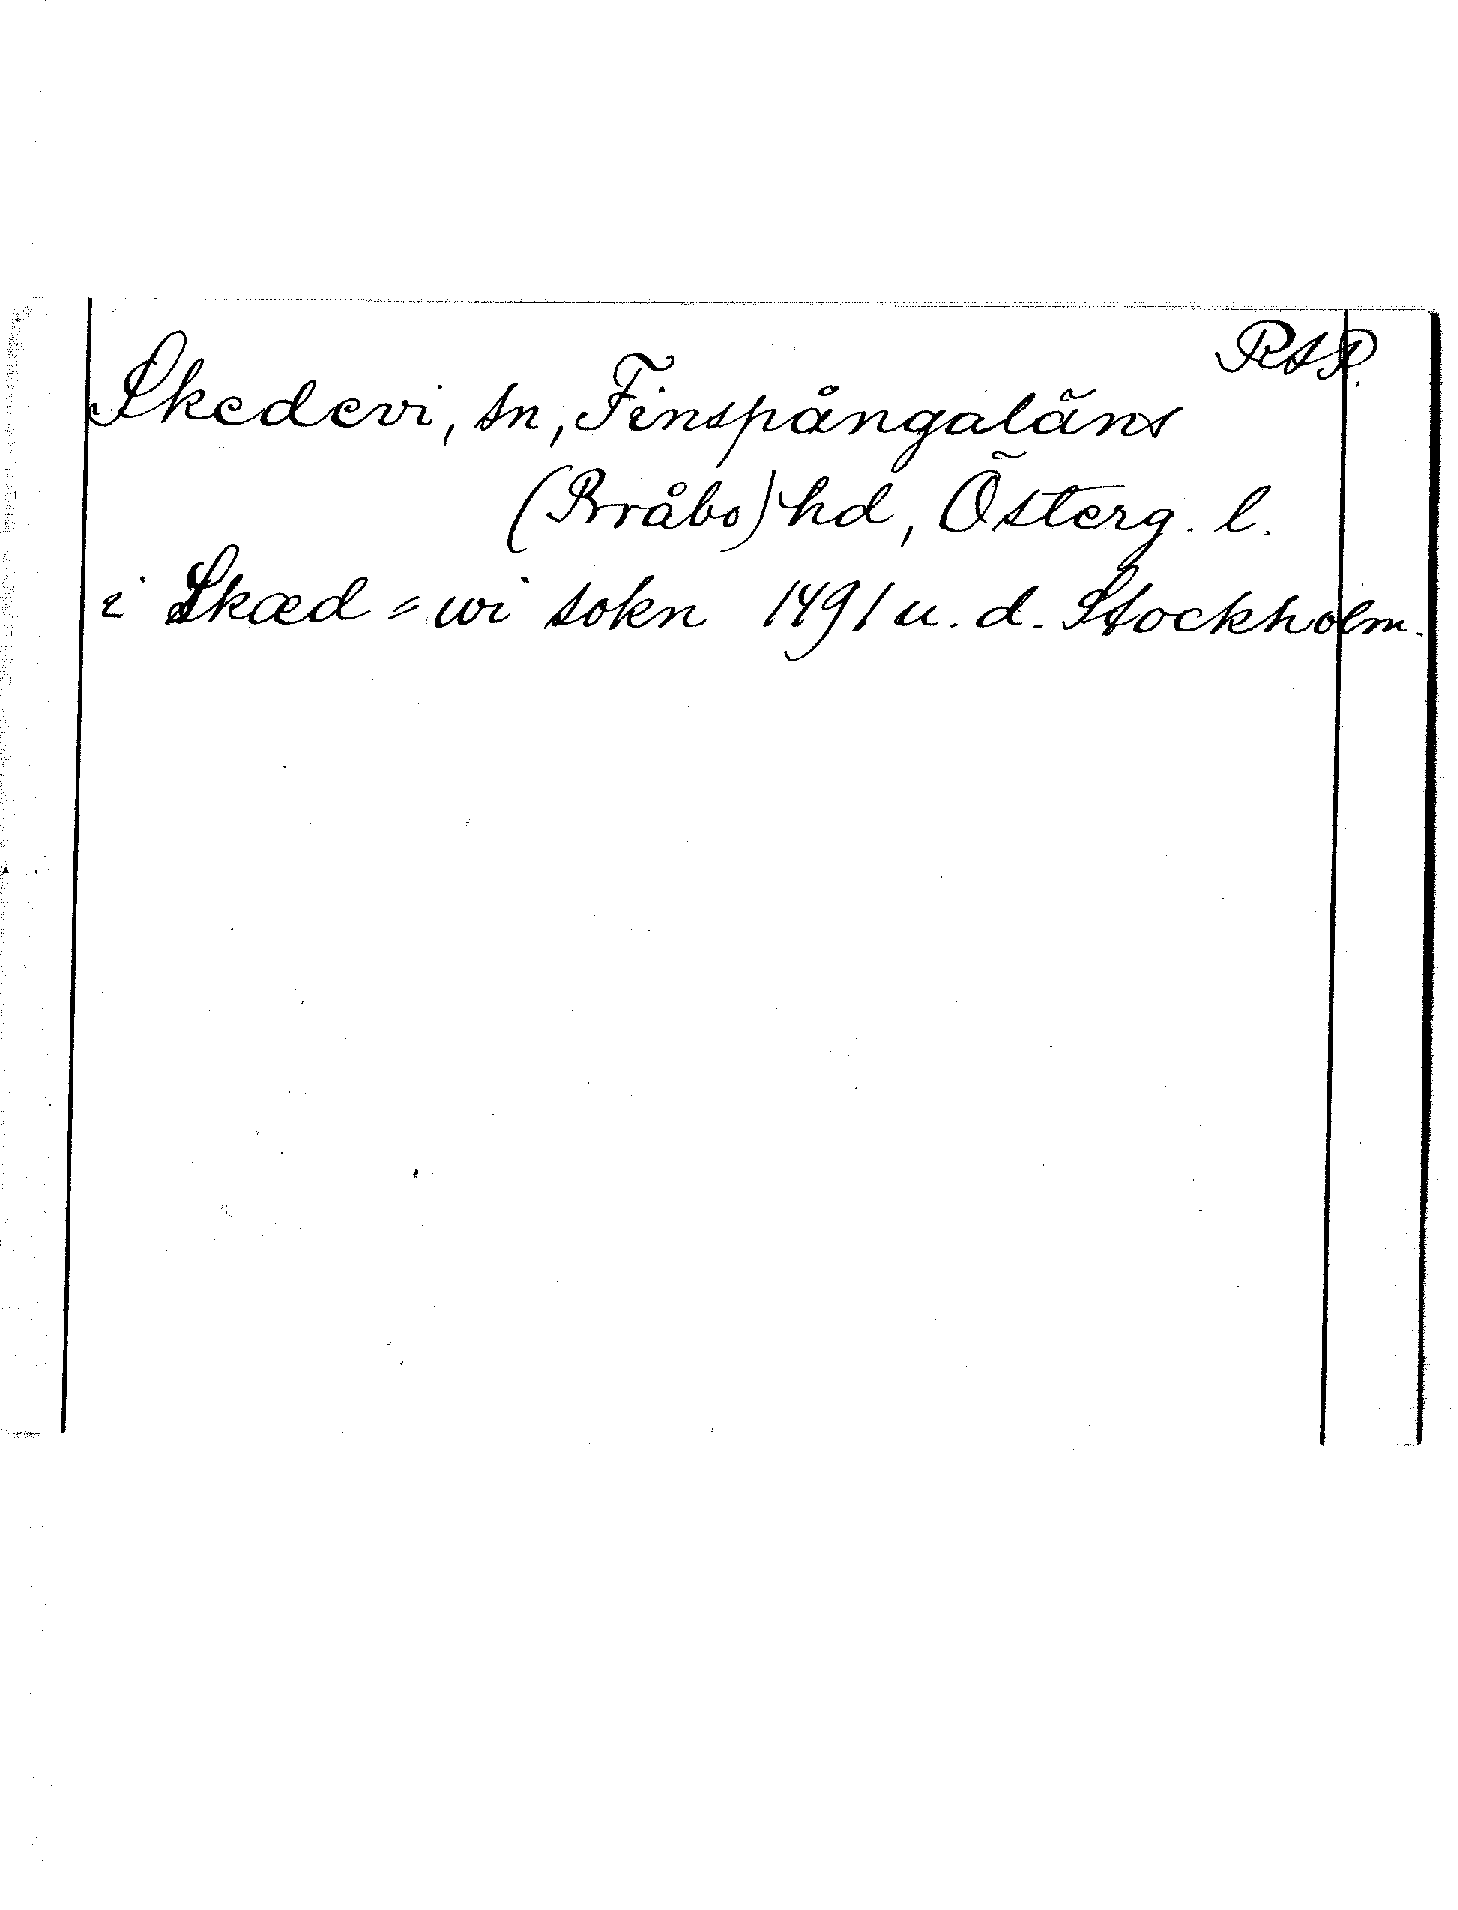 RAP.
Skedevi, sn, Finspångaläns
(Bråbo) hd, Österg. l.
i Skæd=wi sokn 1491 u. d. Stockholm.